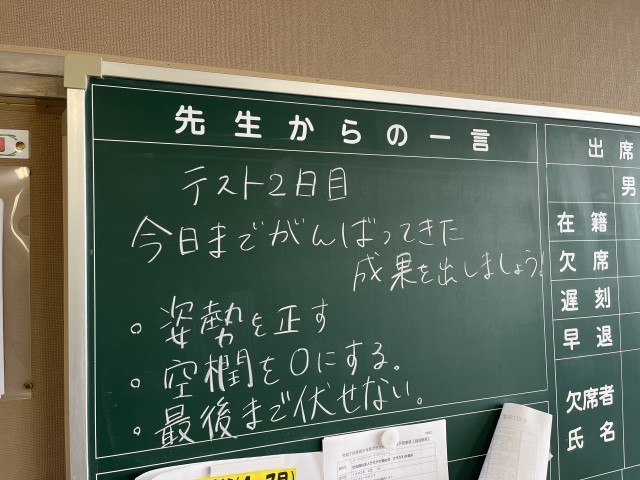 先生からの一言
テスト2日目
今日までがんばってきた
成果を出しましょう!
。姿勢を正す
。空欄を0にする。
。最後まで伏せない。
出席
男
在籍
欠席
遅刻
早退
欠席者
氏名